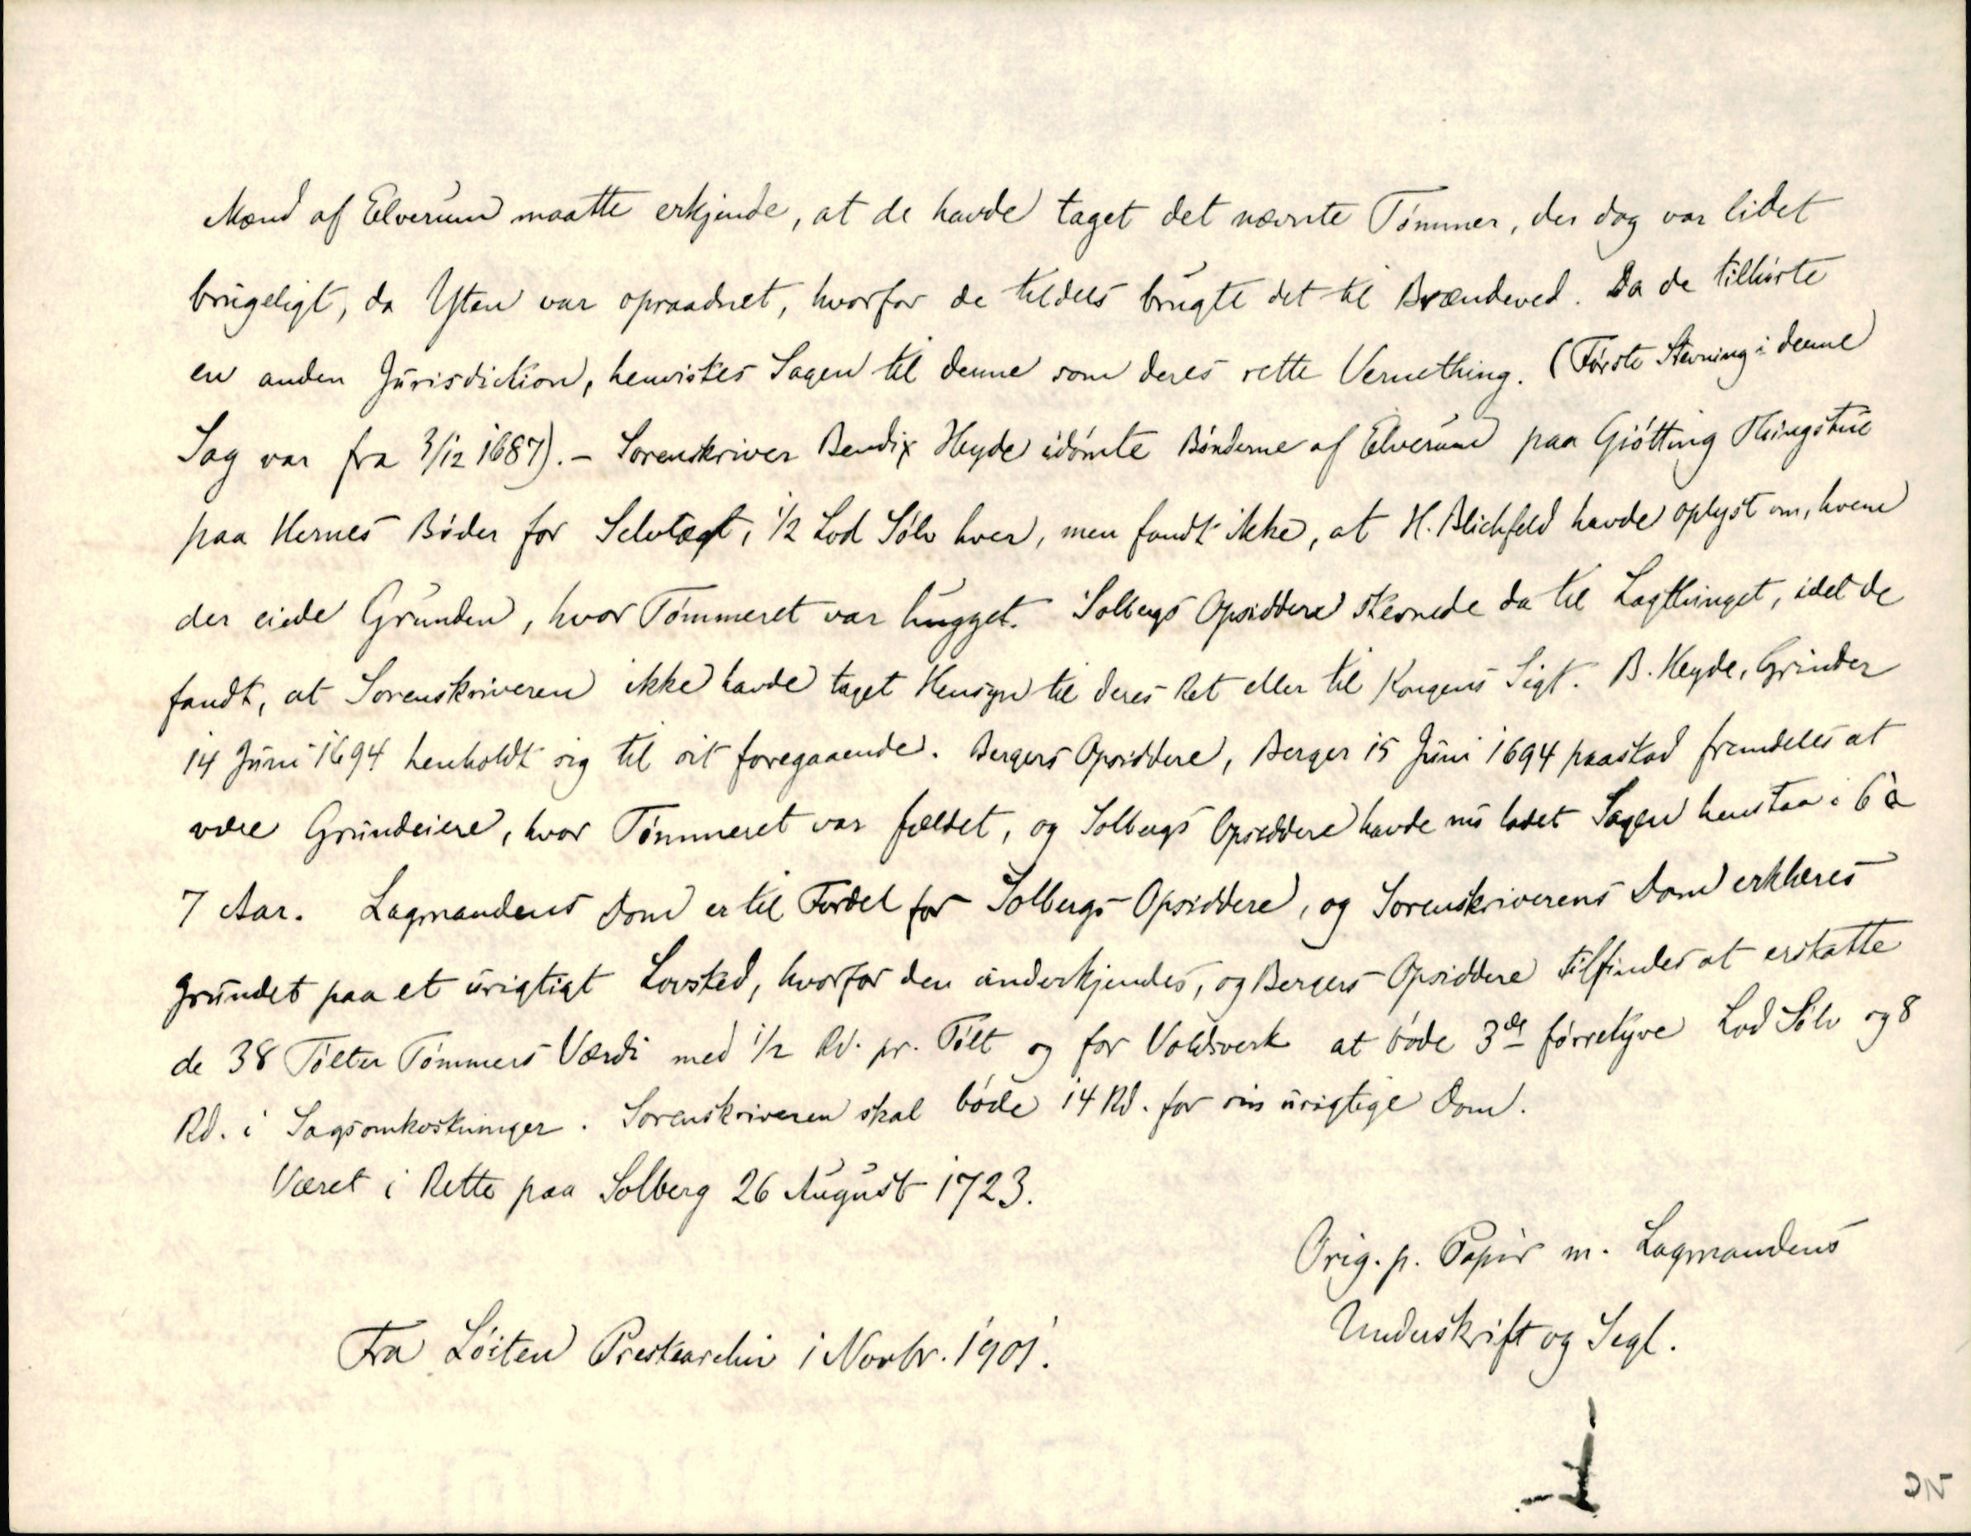 Mænd af Elverum maatte erkjende, at de havde taget det nævnte Tømmer, der dog var lidet
brugeligt, da Yten var opraadnet, hvorfor de tildels brugte det til Brændeved. Da de tilhørte
en anden Jurisdiction, henvistes Sagen til denne som deres rette Vernething. (Første Stevning i denne
Sag var fra 3/12 1687). - Sorenskriver Bendix Heyde idømte Bønderne af Elverum paa Gjøtting Thingstue
paa Hernes Bøder for Selvtægt, 1/2 Lod Sølv hver, men fandt ikke, at H. Blichfeld havde oplyst om, hvem
der eiede Grunden, hvor Tømmeret var hugget. Solbergs Opsiddere stevnede da til Lagthinget, idet de
fandt, at Sorenskriveren ikke havde taget Hensyn til deres Ret eller til Kongens Sigt. B. Heyde, Grinder
14 Juni 1694 henholdt sig til sit foregaaende. Bergers Opsiddere, Berger 15 Juni 1694 paastod fremdeles at
være Grundeiere, hvor Tømmeret var fældet, og Solbergs Opsiddere havde nu ladet Sagen henstaa i 6 à
7 Aar. Lagmandens Dom er til Fordel for Solbergs Opsiddere, og Sorenskriverens Dom erklæres
grundet paa et urigtigt Lovsted, hvorfor den underkjendes, og Bergers Opsiddere tilfindes at erstatte
de 38 Tølter Tømmers Værdi med 1/2 Rd. pr. Tølt og for Voldsverk at bøde 3de førretyve Lod Sølv og 8
Rd. i Sagsomkostninger. Sorenskriveren skal bøde 14 Rd. for sin urigtige Dom.
Været i Rette paa Solberg 26 August 1723.
Orig. p. Papir m. Lagmandens
Underskrift og Segl.
Fra Löiten Prestearchiv i Novbr. 1901.